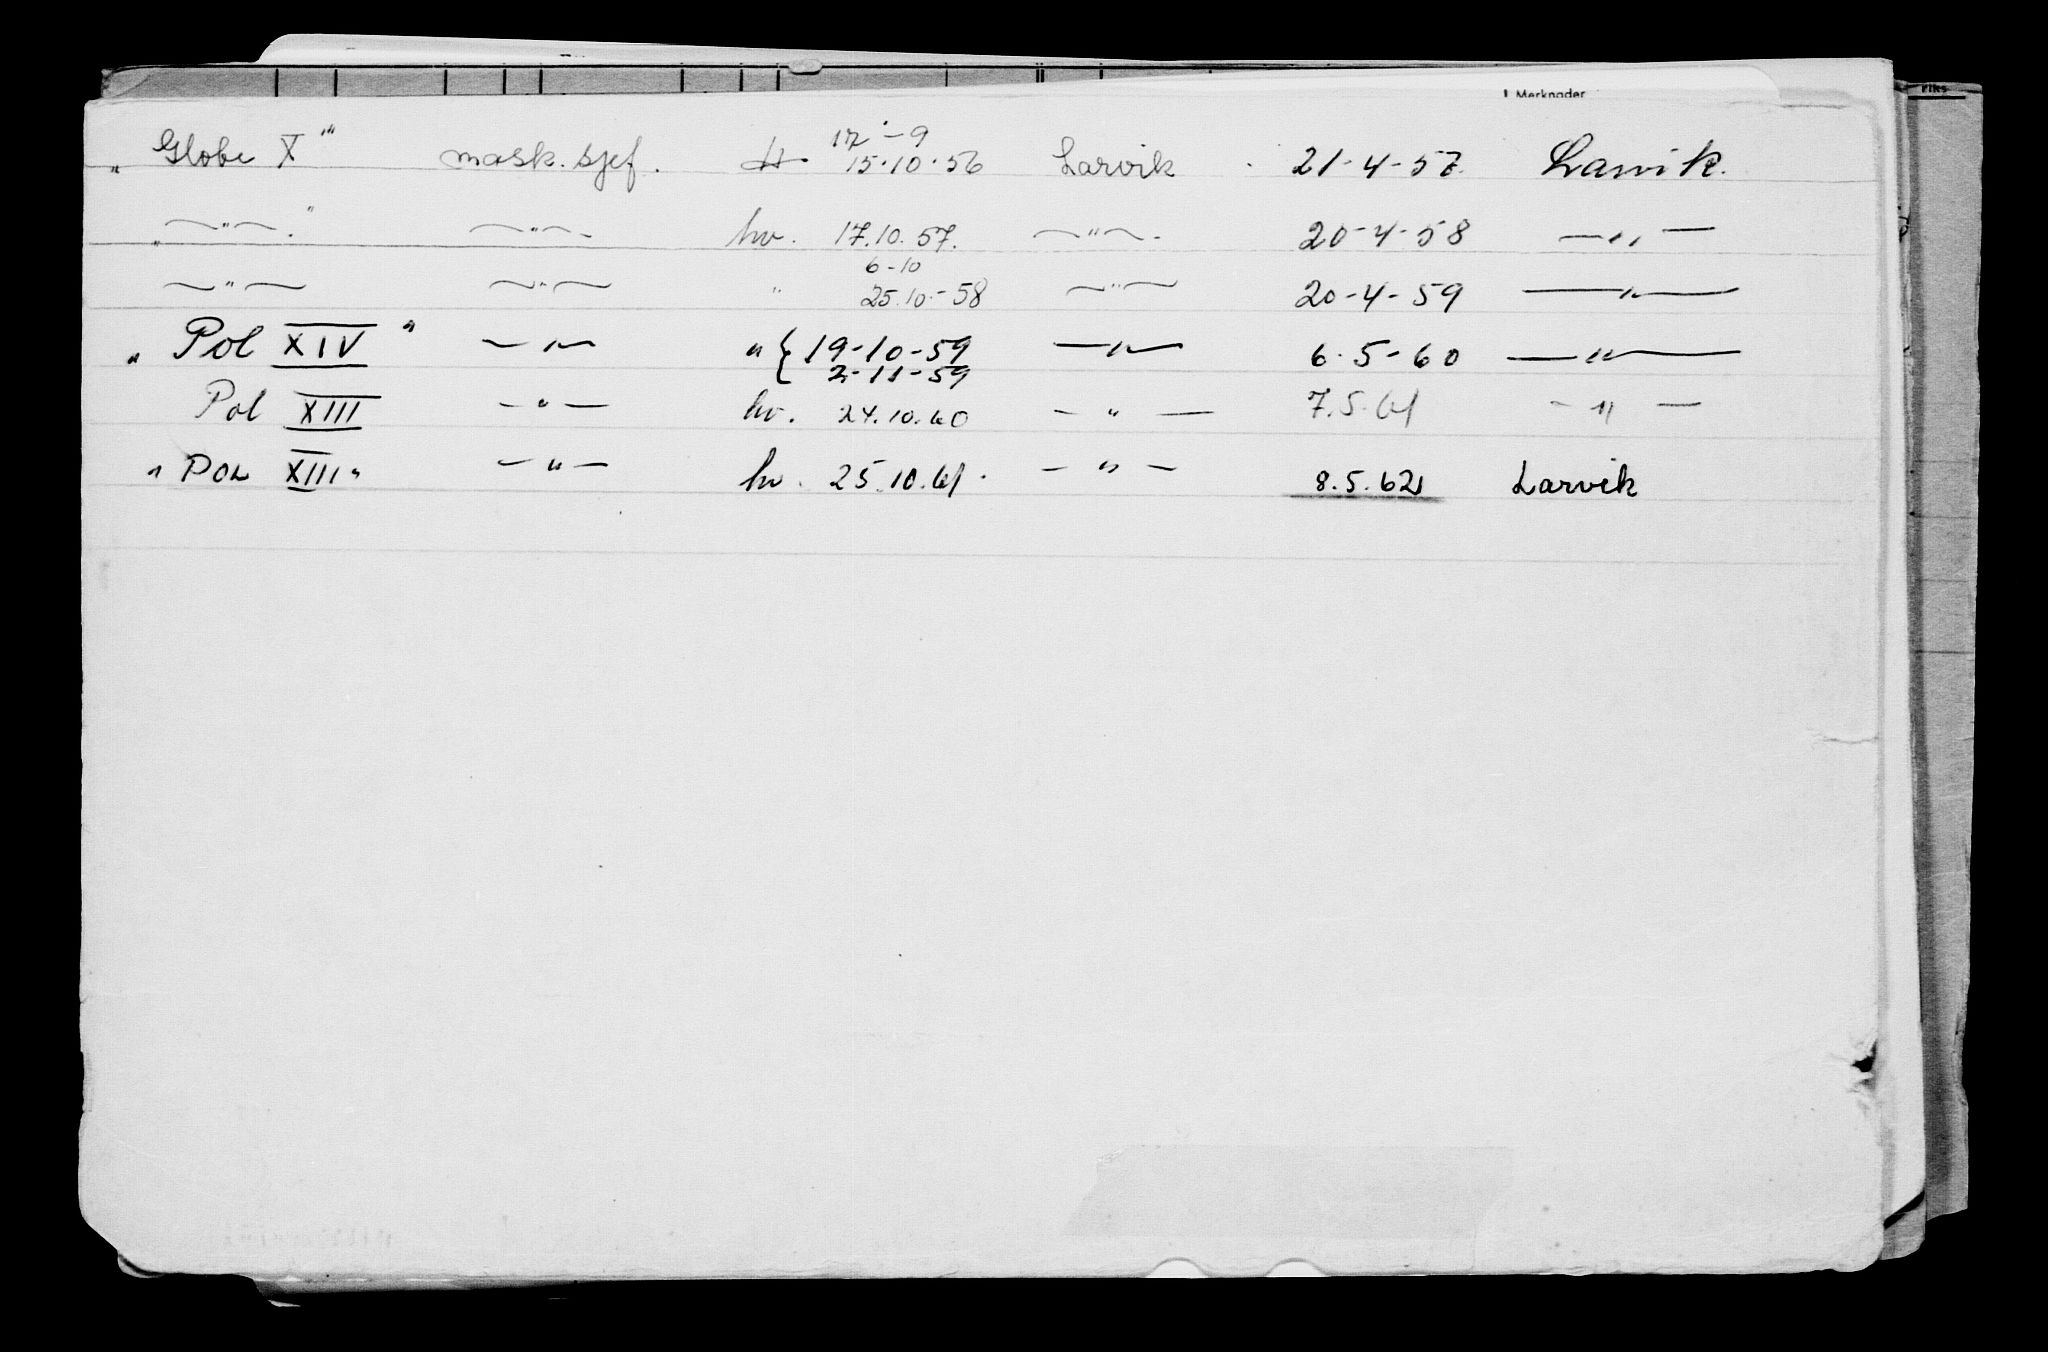 Merknader
17 - 9
„ Globe X " mask.sjef. H. 15-10-56 Larvik 21-4-57. Larvik.
„ — " — . " — " — . hv. 17.10.57. — " — . 20-4-58 — " —
6-10
— " — — " — " 25.10.-58 — " — 20-4-59 — " —
„ Pol XIV " — " — " { 19-10-59 — " — 6-5-60 — " —
2-11-59
Pol XIII — " — hv. 24.10.60 — " — 7.5.61 — " —
" Pol XIII " — " — hv. 25.10.61. — " — 8.5.62 Larvik